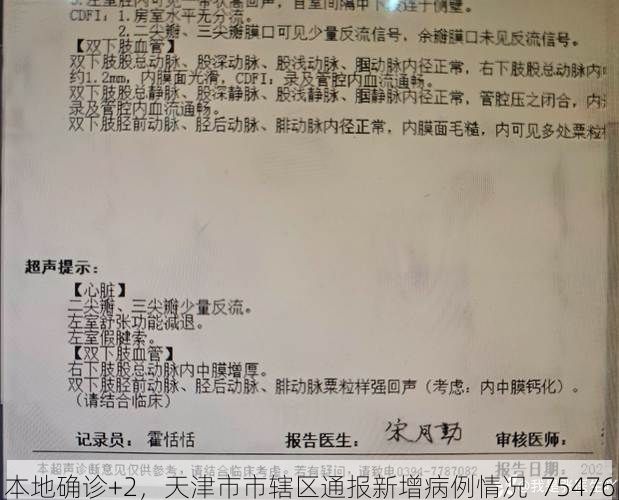 3.左室腔内可见一带状基回声，自室间隔中下段连于侧壁。
CDFI：1.房室水平无分流。
2.二尖瓣、三尖瓣膜口可见少量反流信号，余瓣膜口未见反流信号。
【双下肢血管】
双下肢股总动脉、股深动脉、股浅动脉、腘动脉内径正常，右下肢股总动脉内
约1.2mm，内膜面光滑，CDFI：录及管腔内血流通畅。
双下肢股总静脉、股深静脉、股浅静脉、腘静脉内径正常，管腔压之闭合，内
录及管腔内血流通畅。
双下肢胫前动脉、胫后动脉、腓动脉内径正常，内膜面毛糙，内可见多处粟粒
超声提示：
【心脏】
二尖瓣、三尖瓣少量反流。
左室舒张功能减退。
左室假腱索。
【双下肢血管】
右下肢股总动脉内中膜增厚。
双下肢胫前动脉、胫后动脉、腓动脉粟粒样强回声（考虑：内中膜钙化）。
（请结合临床）
记录员：霍恬恬 报告医生：宋月勤 审核医师：
本超声诊断意见仅供参考，请结合临床考虑。若有疑问，请致电：0394-7798380 报告日期：202
本地确诊+2，天津市市辖区通报新增病例情况_75476